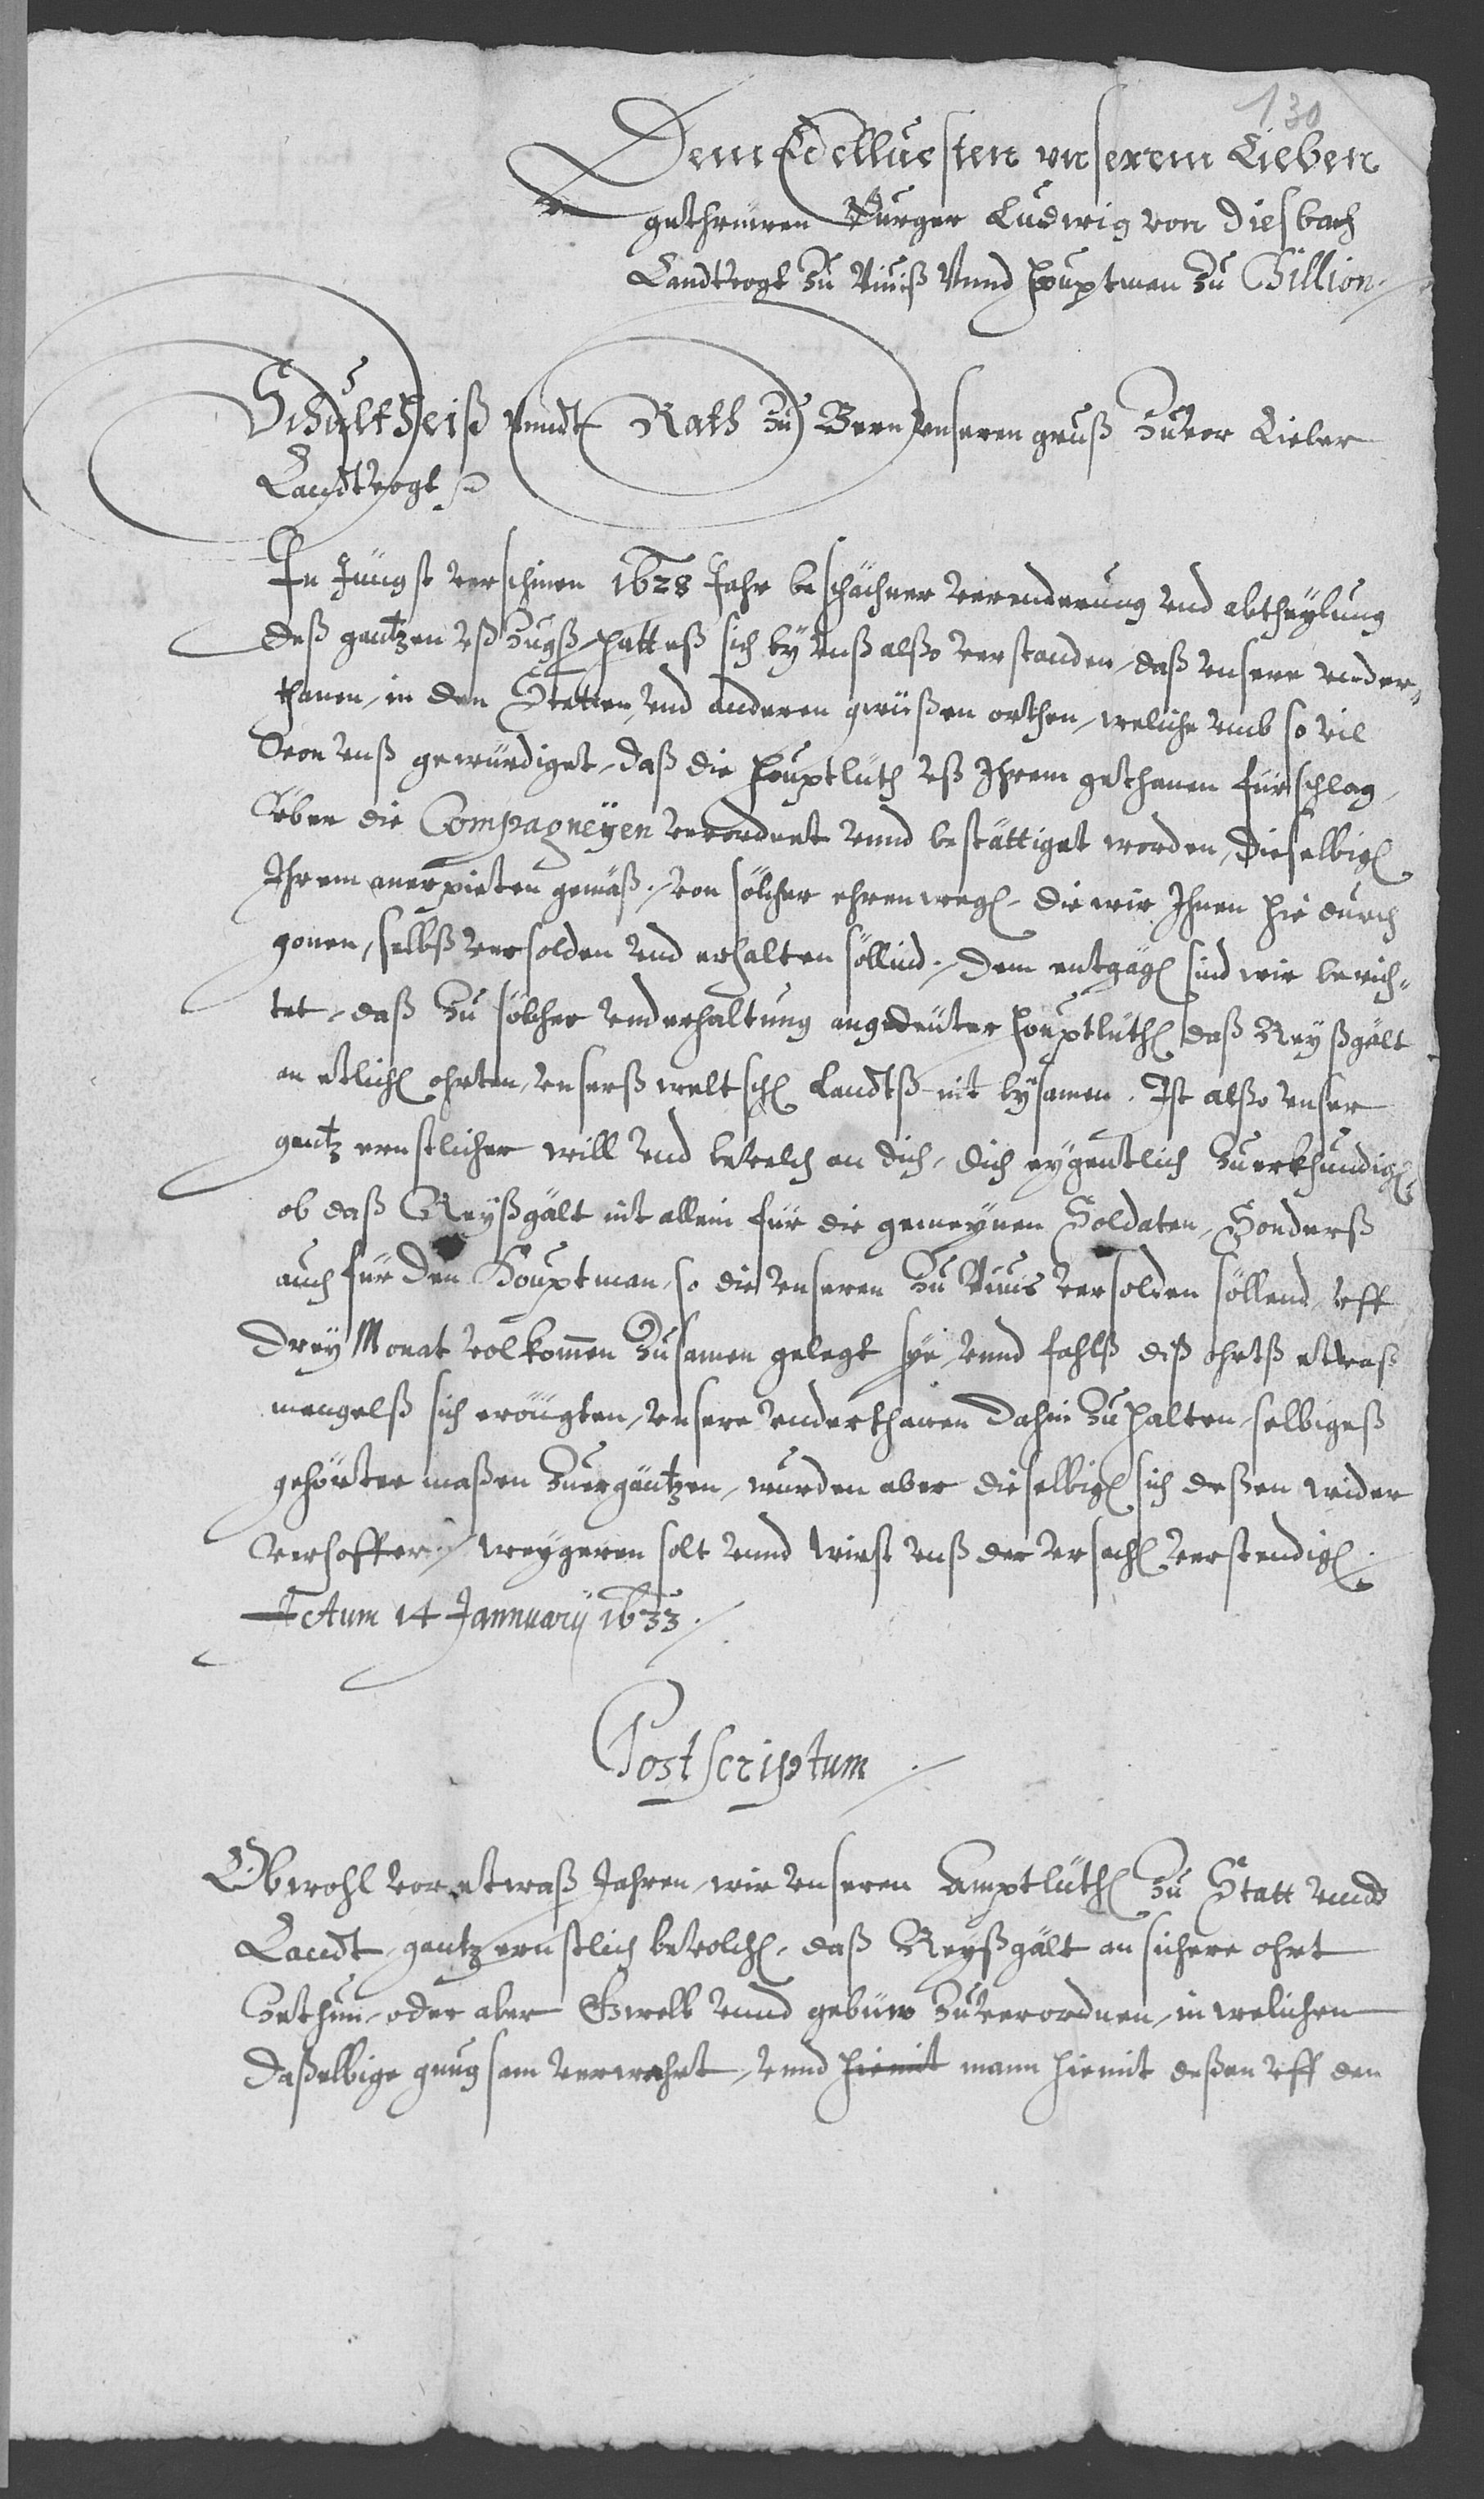 130
Dem Edelluesten unserem Lieben
gethrüwen Burger Ludwig von Diesbach
Landtvogt zu Viuiß Vnnd houptman zu Chillion
Schultheiß vnndt Rath zu Bern vnseren gruß zuvor Lieber
Landtvogt
In Jüngst verschinen 1628 Jahr beschächner verenderung vnd abtheylung
deß gantzen vßzugß, hatt eß sich by vnß alßo verstanden, daß vnsere vnder-
thanen, in den Stetten, vnd anderen gwüßen orthen, weliche vmb so vil
von vnß gewürdiget, daß die houptlüth vß Ihrem gethanen fürschlag,
über die Compagneyen verordnet vnnd bestättiget worden, dieselbigen
Ihrem anerpieten gemäß, von sölcher ehren wegen, die wir Ihnen hie durch
gonen, selbß versolden vnd erhalten söllind. Dem entgägen sind wir berich-
tet, daß zu sölcher vnderhaltung angedeuter houptlüthen daß Reyßgält
an etlichen ohrten, vnserß weltschen Landtß nit bysamen. Ist alßo vnser
gantz ernstlicher will vnd bevelch an dich, dich eygentlich zuerkhundigen,
ob daß Reyßgält nit allein für die gemeynen Soldaten, Sonderß
auch für den Houptman, so die vnseren zu Viuis versolden söllend, vff
drey Monat volkommen zusamen gelegt sye, vnnd fahlß diß ohrtß etwaß
mangelß sich eröugten, vnsere vnderthanen dahin zuhalten, selbigeß
gehörter maßen zuergäntzen, wurden aber dieselbigen sich deßen wider
verhoffen, weygeren solt vnnd wirst vnß der vrsachen verstendigen.
Actum 14 Jannuarij 1633.
Postscriptum
Obwohl vor etwaß Jahren, wir vnseren Amptlüthen zu Statt vnnd
Landt, gantz ernstlich bevolchen, daß Reyßgält an sichere ohrt
zethun, oder aber Gwelb vnnd gebüw zuverordnen, in welichen
daßelbige gnugsam verwahrt, vnnd hiemit mann hiemit deßen vff den